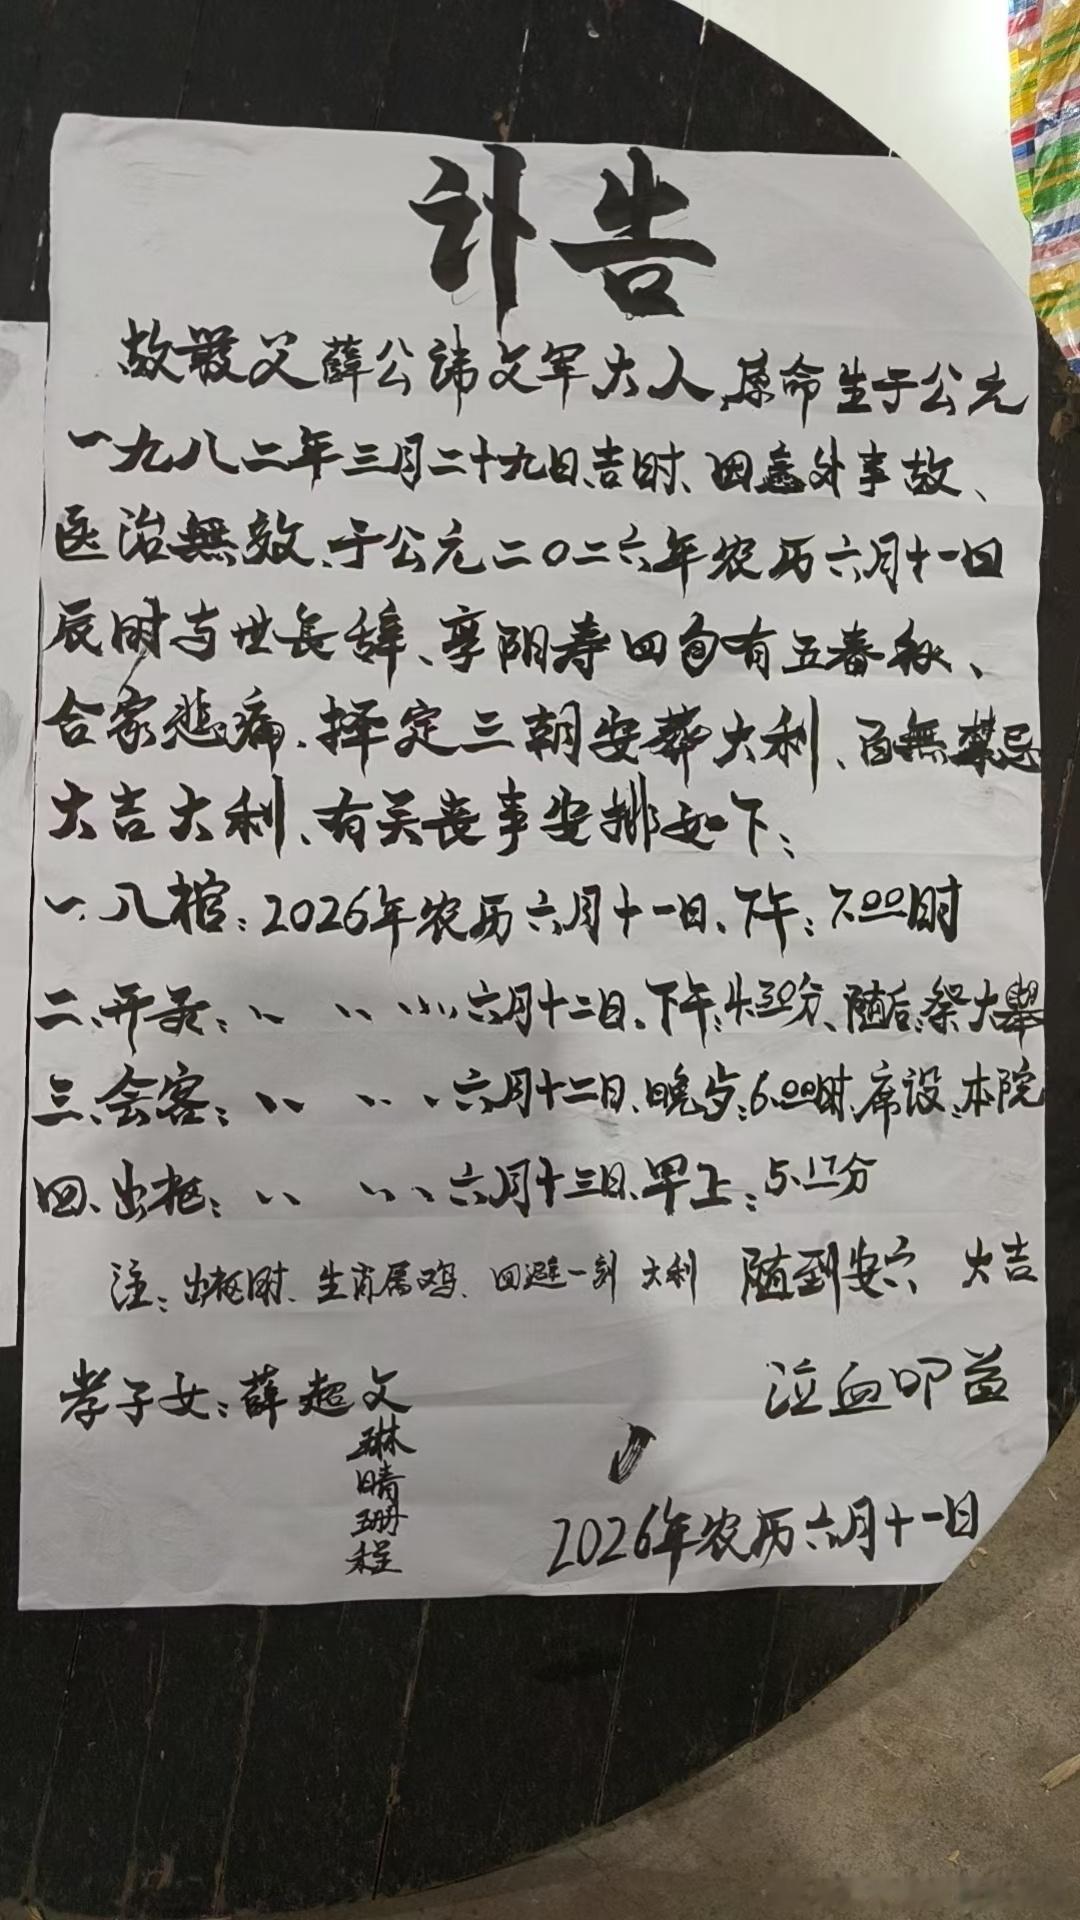 讣告
故严父薛公讳文军大人、原命生于公元
一九八二年三月二十九日吉时、因意外事故、
医治無效、于公元二〇二六年农历六月十一日
辰时与世長辞、享阳寿四旬有五春秋、
合家悲痛、择定三朝安葬大利、百無禁忌
大吉大利、有关丧事安排如下：
一.入棺：2026年农历六月十一日、下午：7.00时
二、开录：、、 、、 、、、六月十二日、下午：4.30分、随后：祭大舉
三、会客：、、 、、、六月十二日、晚上：6.00时、席设：本院
四、出柩：、、 、、、六月十三日、早上：5.17分
注：出柩时、生肖属鸡、回避一刻 大利 随到安穴 大吉
孝子女：薛超文 泣血叩
琳
晴
珊
程
2026年农历六月十一日